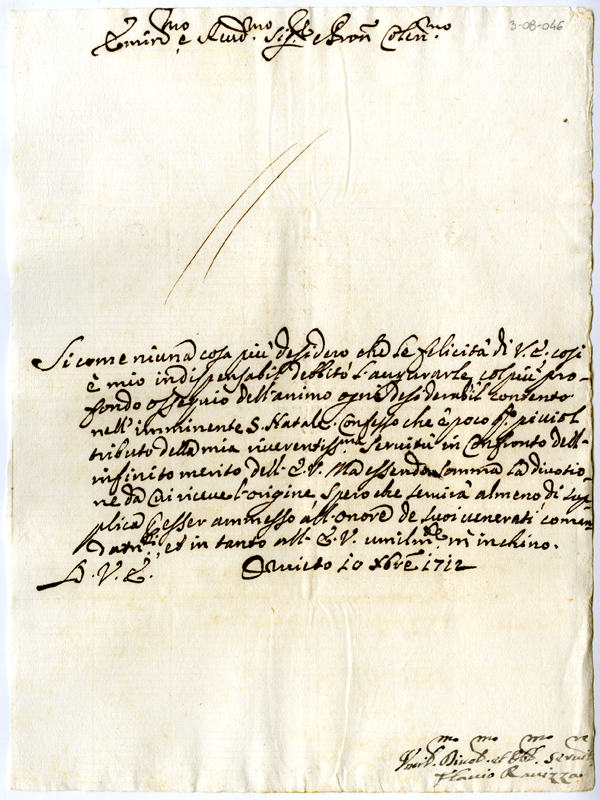 3-08-046
Emin.mo e Reud.mo Sig.re e Pron Colen.mo
Si come niuna cosa più desidero che le felicità di V.E. cosi
è mio indispensabil debbito l'augurarle, col più pro-
fondo ossequio dell'animo ogni desiderabil contento
nell'imminente S. Natale. Confesso che è poco q.o picciol
tributo della mia riuerentiss.ma seruitù in confronto dell-
infinito merito dell-E.V. Ma essendo somma la diuotio-
ne da cui riceue l-origine, spero che seruirà almeno di sup-
plica p esser ammesso all-onore de suoi uenerati coman-
dam.ti, et in tanto all-E.V. umilm.te m'inchino.
D.V.E. Oruieto 10 Xbre 1712
Vmil.mo Diuot.mo et Obl.mo Seruit.re
Flauio Rauizza